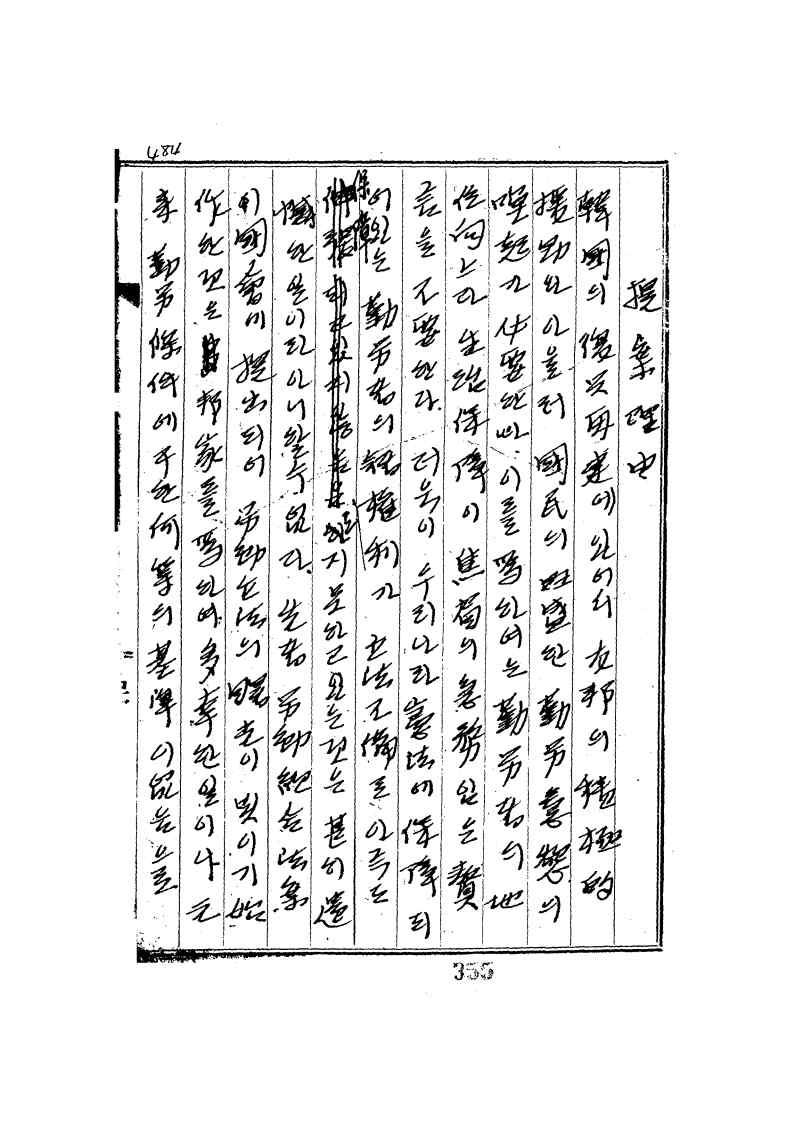 484
提案理由
韓國의 復興再建에 있어서 友邦의 積極的
援助와 아울러 國民의 旺盛한 勤勞意慾의
喚起가 必要한바 이를 爲하여는 勤勞者의 地
位向上과 生活保障이 焦眉의 急務임은 贅
言을 不要한다. 더욱이 우리나라 憲法에 保障되
어있는 勤勞者의 權利가 立法不備로 아직도
保障되지 못하고 있는것은 甚히 遺
憾한 일이라 아니할수 없다. 先者 勞動組合法案
이 國會에 提出되어 勞動立法의 曙光이 빛이기 始
作한것은 邦家를 爲하여 多幸한 일이나 元
來 勤勞條件에 關한 何等의 基準이 없음으로
355